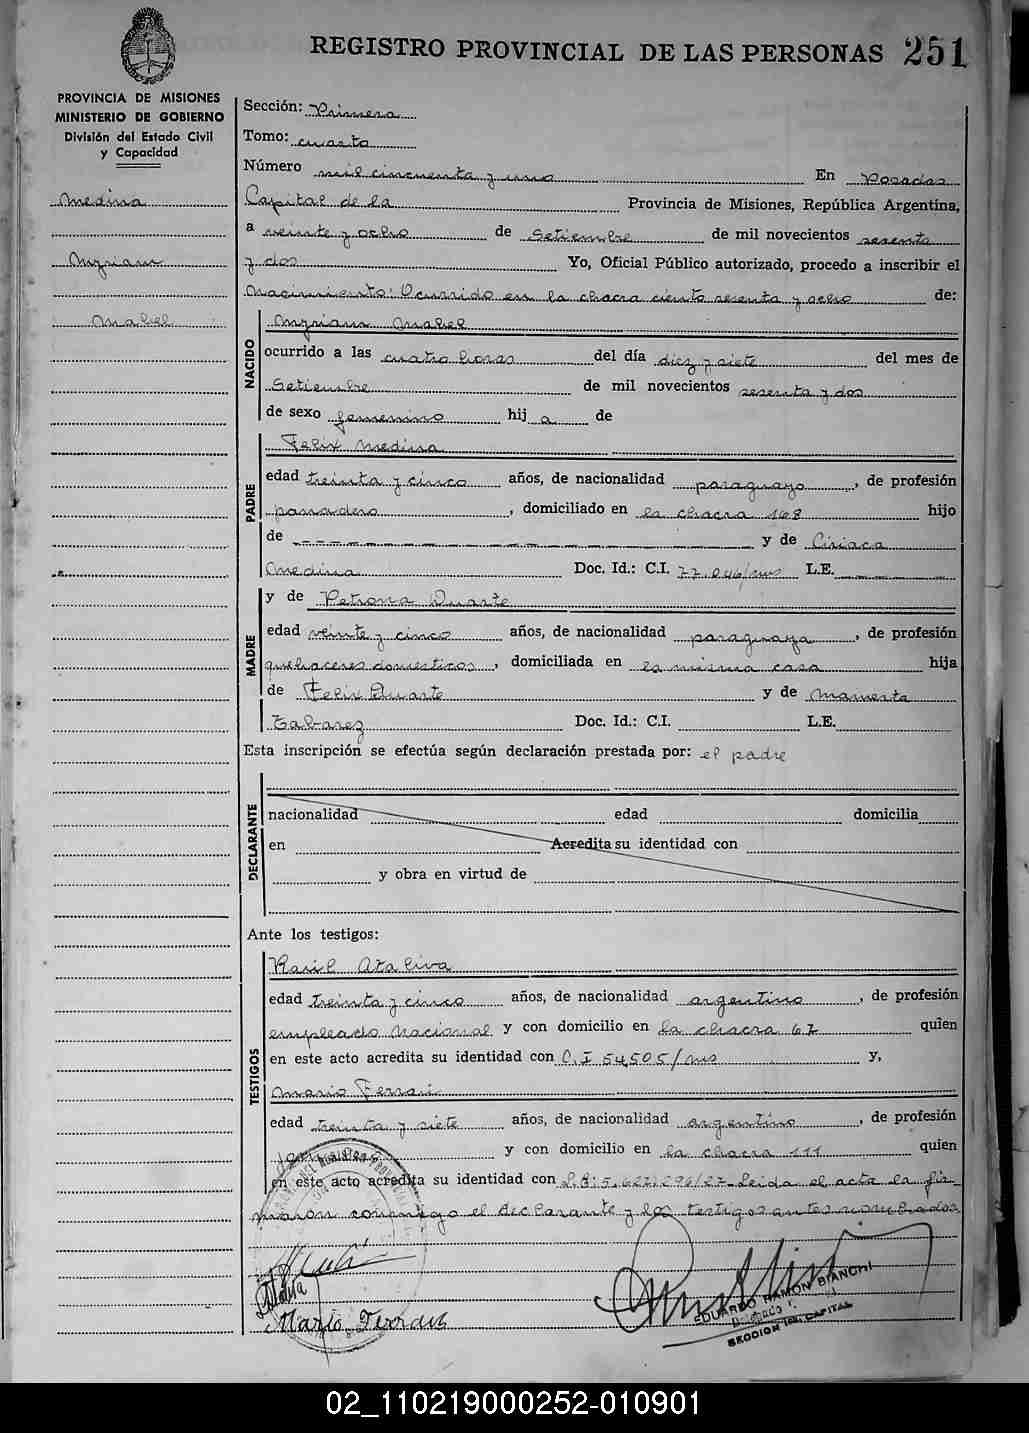 REGISTRO PROVINCIAL DE LAS PERSONAS 251
PROVINCIA DE MISIONES
MINISTERIO DE GOBIERNO
División del Estado Civil
y Capacidad
Medina
Myriam
Mabel
Sección: Primera
Tomo: cuarto
Número mil cincuenta y uno En Posadas
Capital de la Provincia de Misiones, República Argentina,
a veinte y ocho de Setiembre de mil novecientos sesenta
y dos Yo, Oficial Público autorizado, procedo a inscribir el
Nacimiento: Ocurrido en la chacra ciento sesenta y ocho de:
NACIDO
Myriam Mabel
ocurrido a las cuatro horas del día diez y siete del mes de
Setiembre de mil novecientos sesenta y dos
de sexo femenino hij a de
PADRE
Felix Medina
edad treinta y cinco años, de nacionalidad paraguayo, de profesión
panadero, domiciliado en la chacra 168 hijo
de y de Ciriaca
Medina Doc. Id.: C.I. 77.046/ms L.E.
MADRE
y de Petrona Duarte
edad veinte y cinco años, de nacionalidad paraguaya, de profesión
quehaceres domesticos, domiciliada en la misma casa hija
de Felix Duarte y de Mamerta
Tabarez Doc. Id.: C.I. L.E.
Esta inscripción se efectúa según declaración prestada por: el padre
DECLARANTE
nacionalidad edad domicilia
en Acredita su identidad con
y obra en virtud de
Ante los testigos:
TESTIGOS
Raúl Ataliva
edad treinta y cinco años, de nacionalidad argentino, de profesión
empleado Nacional y con domicilio en la chacra 67 quien
en este acto acredita su identidad con C.I 54,505/ms y,
Mario Ferrari
edad treinta y siete años, de nacionalidad argentino, de profesión
y con domicilio en la chacra 111 quien
en este acto acredita su identidad con 5.627.296/27 Leida el acta la fir-
maron conmigo el declarante y los testigos antes nombrados
Mario Ferrari
EDUARDO RAMON BIANCHI
Delegado
SECCION 1ra. CAPITAL
02_110219000252-010901